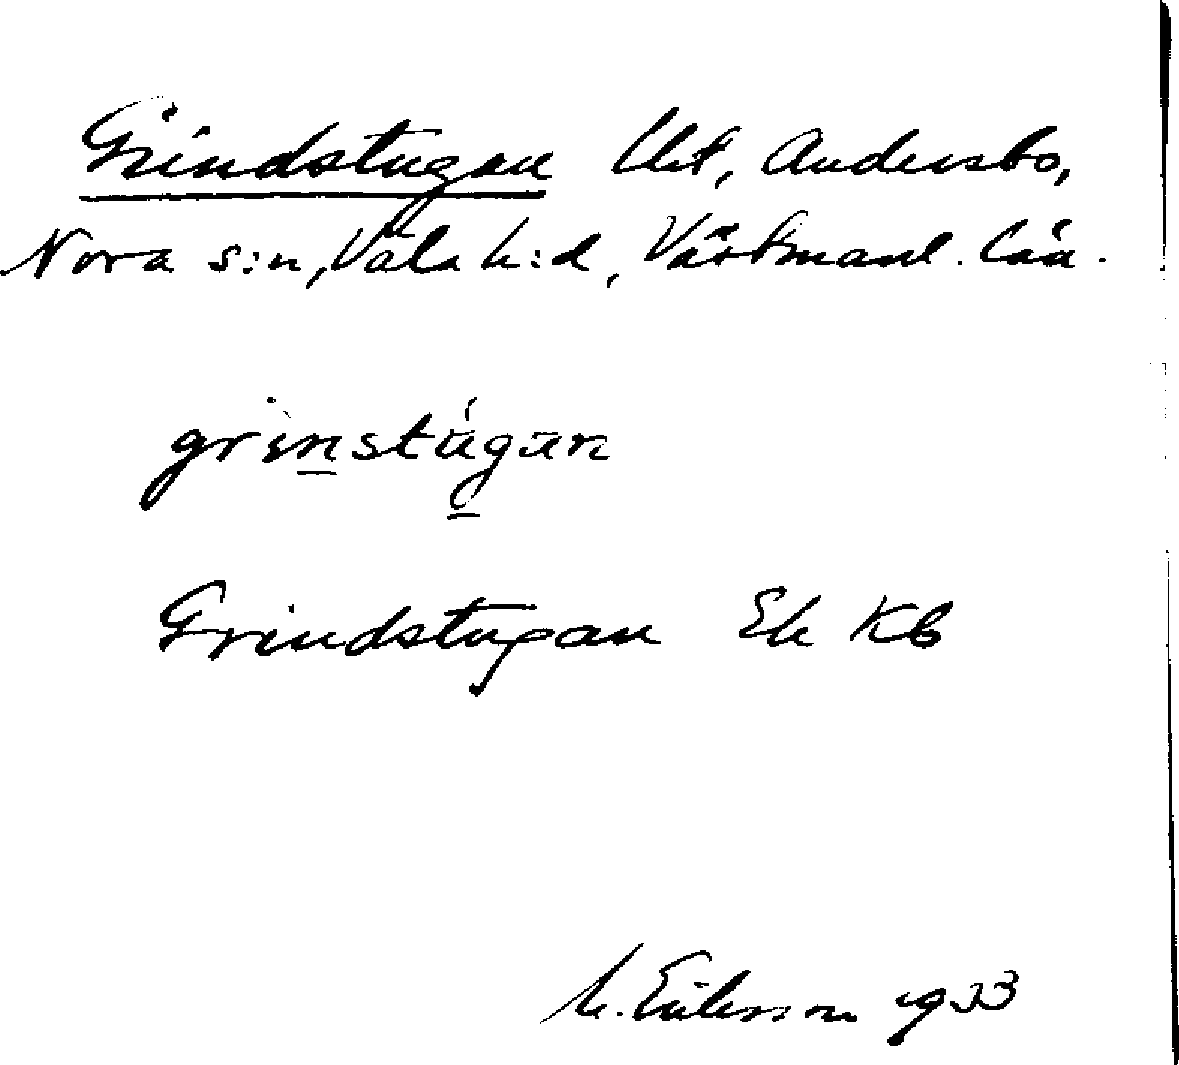 Grindstugan lht, Andersbo,
Nora s:n, Våla h:d, Västmanl. län.
grinstùgan
Grindstugan Ek Kb
M. Eriksson 1933